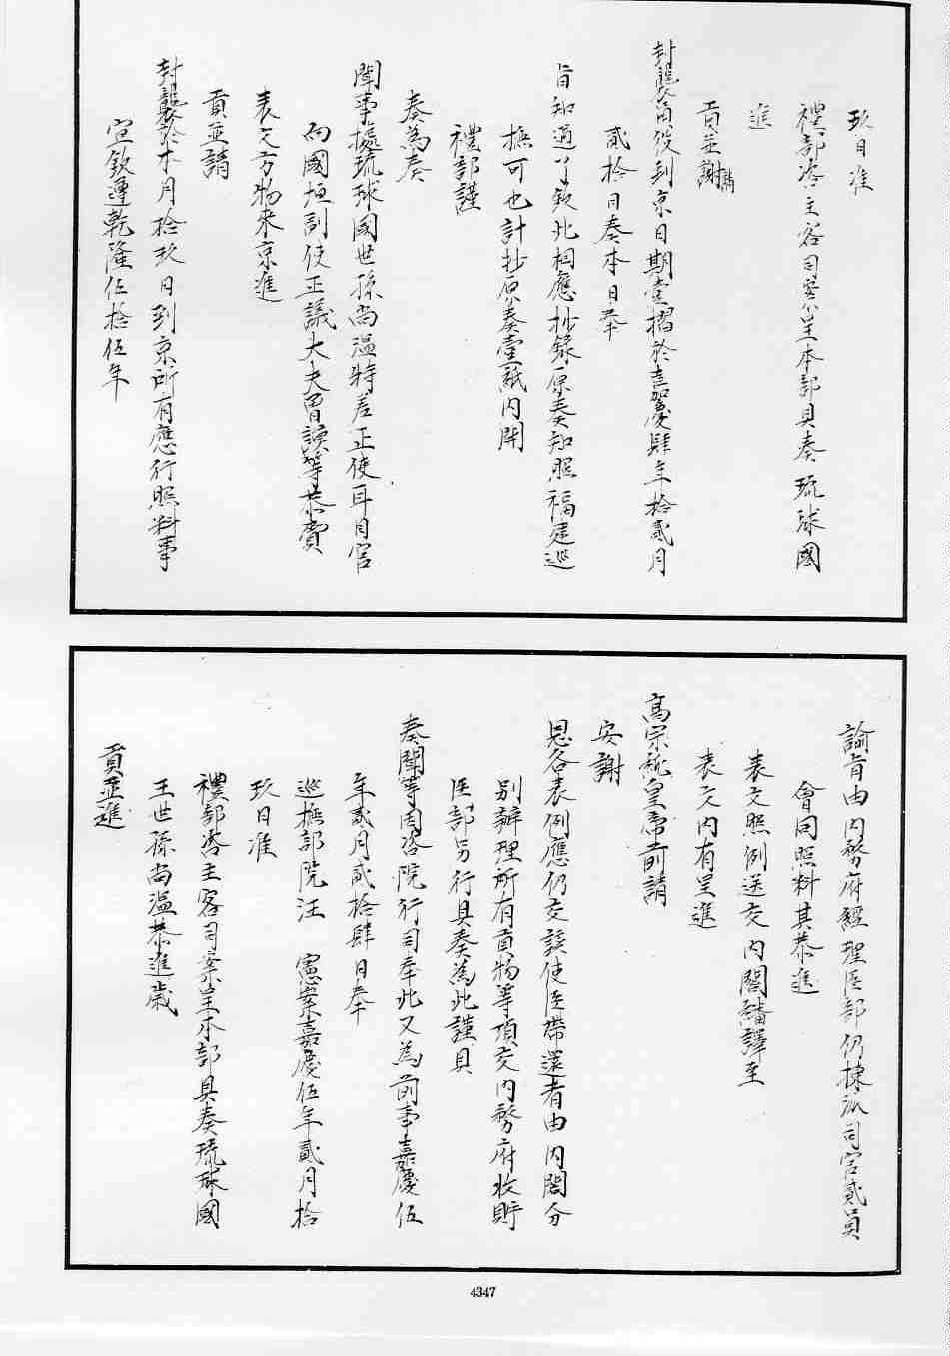 玖日准
禮部咨主客司案呈本部具奏琉球國
進
貢並謝請
封襲官役到京日期壹摺於嘉慶肆年拾貳月
貳拾日奏本日奉
旨知道了欽此相應抄錄原奏知照福建巡
撫可也計抄原奏壹紙內開
禮部謹
奏為奏
聞事據琉球國世孫尚溫特差正使耳目官
向國垣副使正議大夫曾謨等恭賫
表文方物來京進
貢並請
封襲於本月拾玖日到京所有應行照料事
宜欽遵乾隆伍拾伍年
諭旨由內務府經理臣部仍揀派司官貳員
會同照料其恭進
表文照例送交內閣繙譯至
表文內有呈進
高宗純皇帝前請
安謝
恩各表例應仍交該使臣帶還者由內閣分
別辦理所有貢物等項交內務府收貯
臣部另行具奏為此謹具
奏聞等因咨院行司奉此又為前事嘉慶伍
年貳月貳拾肆日奉
巡撫部院汪 憲案嘉慶伍年貳月拾
玖日准
禮部咨主客司案呈本部具奏琉球國
王世孫尚溫恭進歲
貢並進
4347